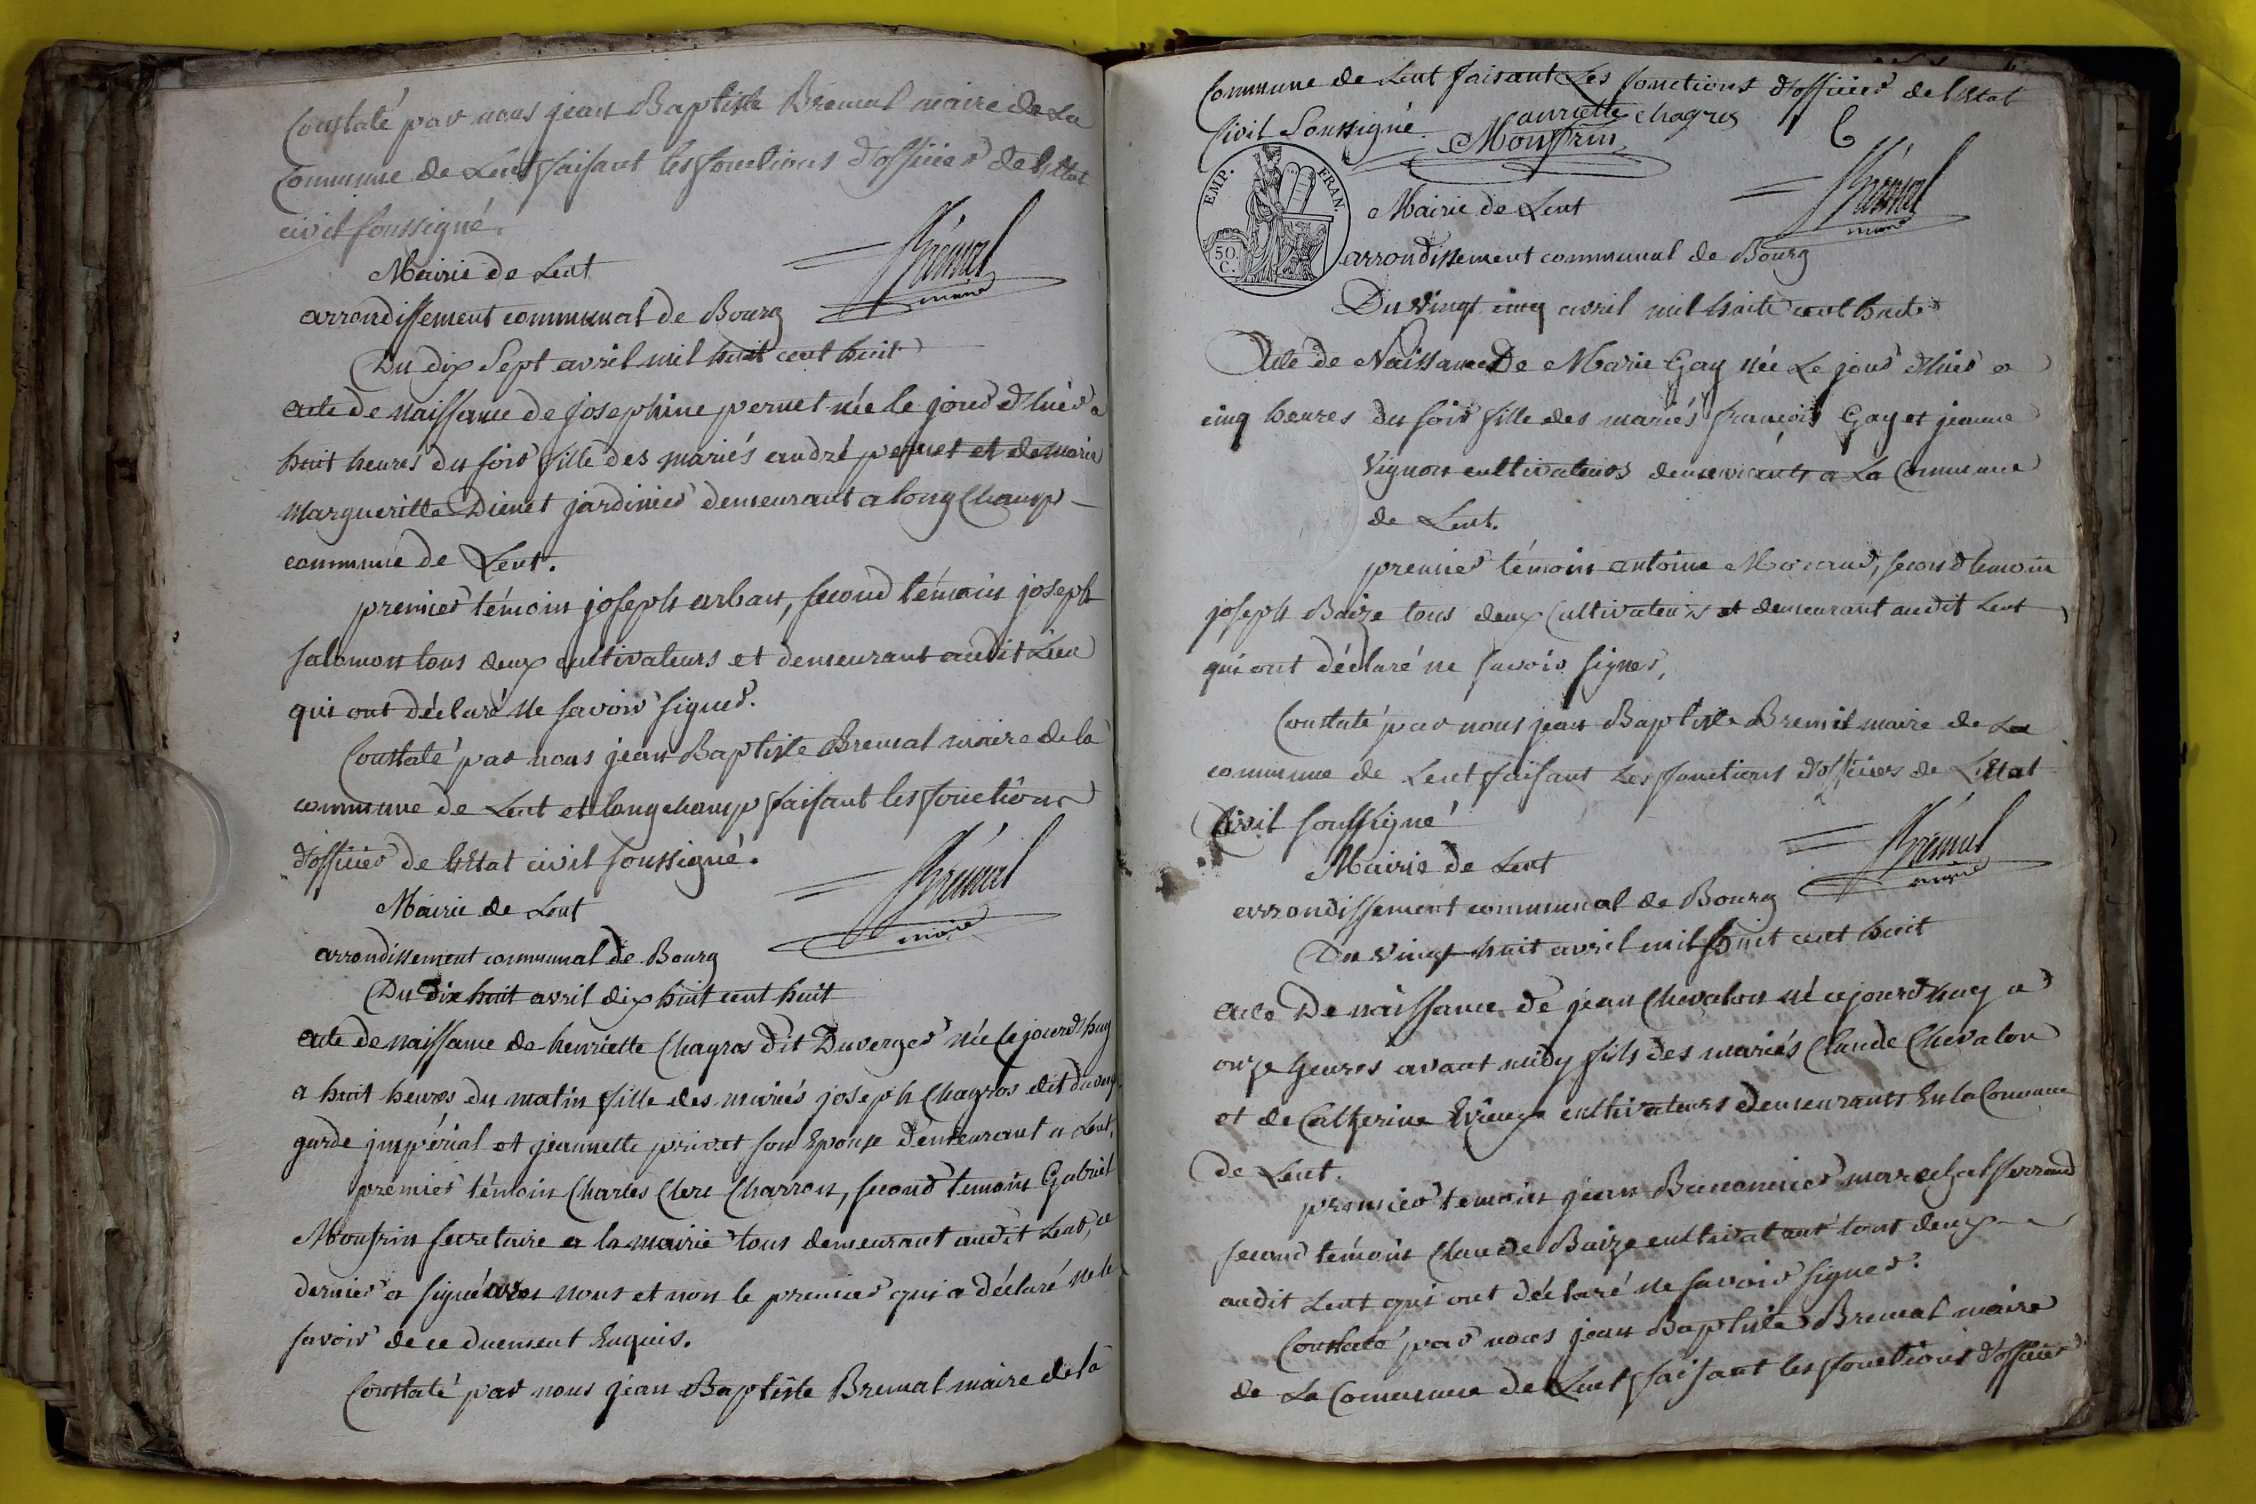 Constaté par nous jean Baptiste Bremal maire de La
Commune de Lent faisant les fonctions d'officier de l'Etat
civil soussigné.
Brémal
maire
Mairie de Lent
arrondissement communal de Bourg
Du dix Sept avril mil huit cent huit
acte de naissance de josephine pernet née le jour d'hier a
huit heures du soir fille des mariés andré pernet et de marie
Margueritte Dienet jardinier demeurant a longChamp
commune de Lent.
premier témoin joseph arban, second témoin joseph
salomon tous deux cultivateurs et demeurant audit Lieu
qui ont déclaré ne savoir signer.
Constaté par nous jean Baptiste Bremal maire de la
commune de Lent et longchamp faisant les fonctions
d'officier de l'Etat civil soussigné.
Brémal
maire
Mairie de Lent
arrondissement communal de Bourg
Du dix huit avril dix huit cent huit
acte de naissance de henriette Chagros dit Duverger née Cejourd'huy
a huit heures du matin fille des mariés joseph Chagros dit
garde impérial et jeannette privet son Epouse demeurant a Lent,
premier témoin Charles Clerc Charron, second temoin Gabriel
Monfrin secretaire a la mairie tous demeurant audit Lent, ce
dernier a signé avec nous et non le premier qui a déclaré ne le
savoir de ce duement Enquis.
Constaté par nous jean Baptiste Bremal maire de la
Commune de Lent faisant Les fonctions d'officier de l'Etat
Civil Soussigné.
anriette chagros
Monfrin
Brémal
maire
EMP. FRAN.
50.
C.
Mairie de Lent
arrondissement communal de Bourg
Du vingt cinq avril mil huit cent huit
Acte de Naissance De Marie Gay née Le jour d'hier a
cinq heures du soir fille des mariés françois Gay et jeanne
Vignon cultivateurs demeurants a La Commune
de Lent.
premier témoin antoine, second temoin
joseph Baize tous deux Cultivateurs et demeurant audit Lent
qui ont déclaré ne savoir signer,
Constaté par nous jean Baptiste Bremal maire de La
commune de Lent faisant Les fonctions d'officier de L'Etat
Civil soussigné
Brémal
maire
Mairie de Lent
arrondissement communal de Bourg
Du vingt huit avril mil huit cent huit
acte De naissance de jean Chevalon né cejourd'huy a
onze heures avant midy fils des mariés Claude Chevalon
et de Catherine Evieux cultivateurs demeurants En la Commune
de Lent.
premier temoin jean marechal ferrand
second temoin Claude Baize cultivatant tous deux
audit Lent qui ont déclaré ne savoir signer.
Constaté par nous jean Baptiste Bremal maire
de La Commune de Lent faisant les fonctions d'officier